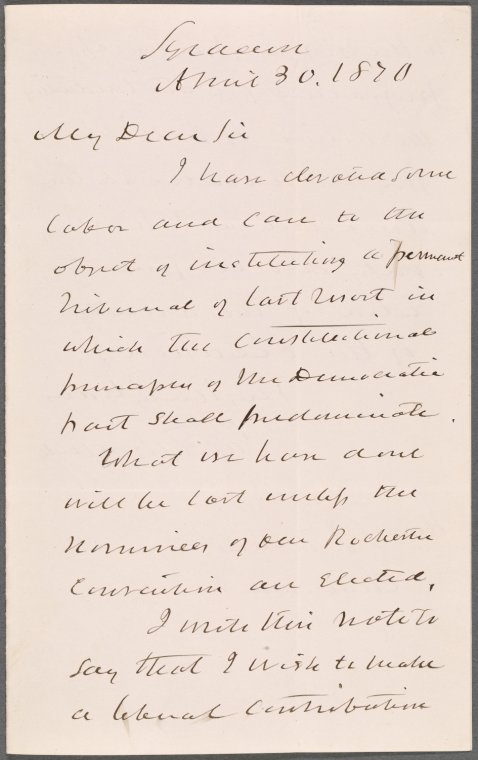 Syracuse
April 30. 1870
My Dear Sir
I have devoted some
labor and care to the
object of instituting a permanent
tribunal of last resort in
which the Constitutional
principles of the Democratic
part shall predominate.
What we have done
will be lost unless the
Nominees of our Rochester
Convention are Elected.
I write this note to
say that I wish to make
a liberal contribution